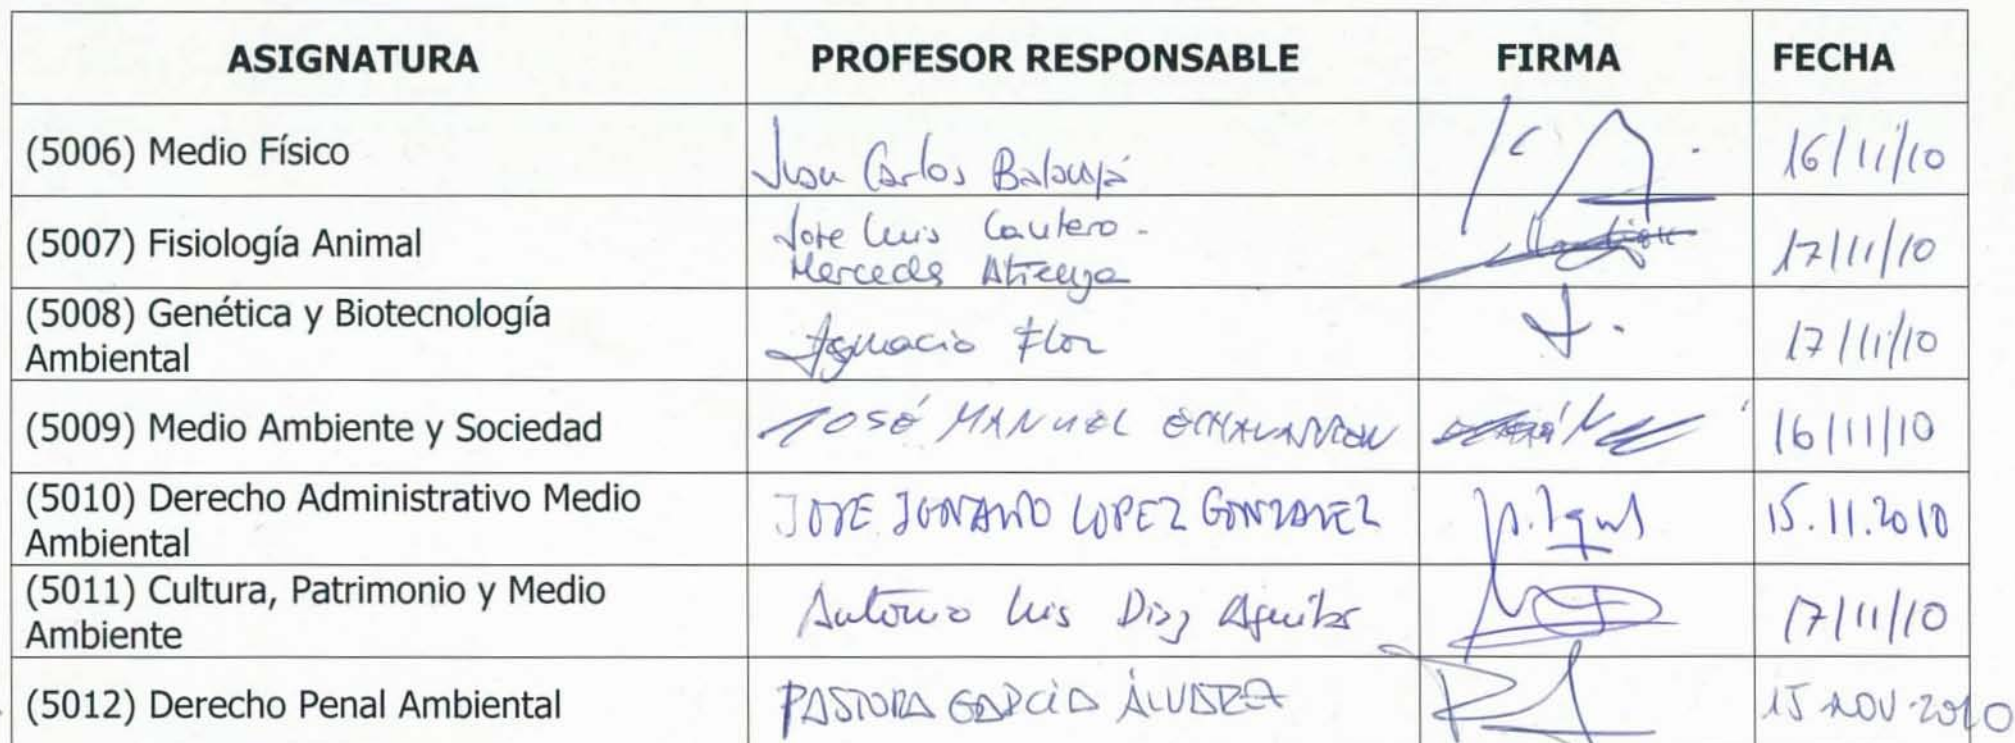 ASIGNATURA PROFESOR RESPONSABLE FIRMA FECHA
(5006) Medio Físico Juan Carlos 16/11/10
(5007) Fisiología Animal Jose Luis Cantero - 17/11/10
Mercedes Atienza
(5008) Genética y Biotecnología
Ambiental Ignacio Flor 17/11/10
(5009) Medio Ambiente y Sociedad JOSÉ MANUEL ECHAVARREN 16/11/10
(5010) Derecho Administrativo Medio
Ambiental JOSE IGNACIO LOPEZ GONZALEZ 15.11.2010
(5011) Cultura, Patrimonio y Medio
Ambiente Antonio Luis Díaz Aguilar 17/11/10
(5012) Derecho Penal Ambiental PASTORA GARCÍA ÁLVAREZ 15 NOV-2010